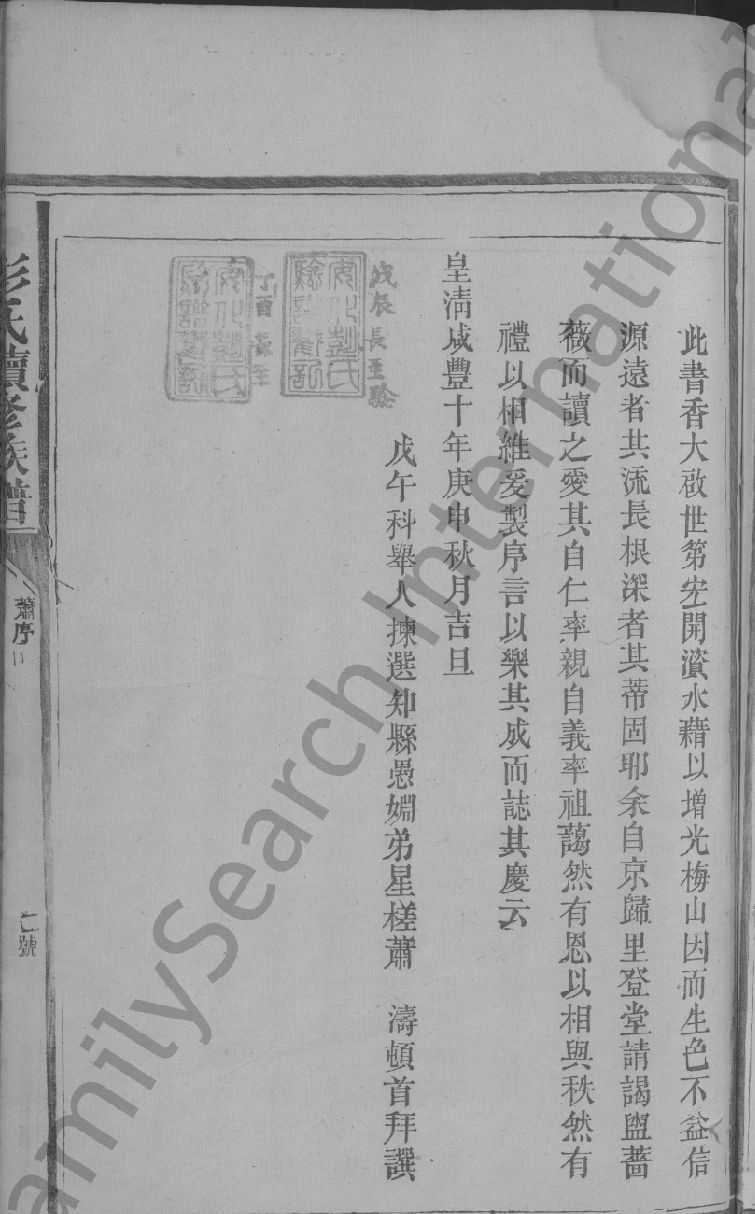 此書香大啟世第宏開濱水藉以增光梅山因而生色不益信
源遠者其流長根深者其蒂固耶余自京歸里登堂請謁盥薔
薇而讀之愛其自仁率親自義率祖藹然有恩以相與秩然有
禮以相維爰製序言以樂其成而誌其慶云
皇清咸豐十年庚申秋月吉旦
戊午科舉人揀選知縣愚姻弟星槎蕭　濤頓首拜譔
戊辰長至驗
丁酉
彭氏續修族譜
蕭序
號
FamilySearch International